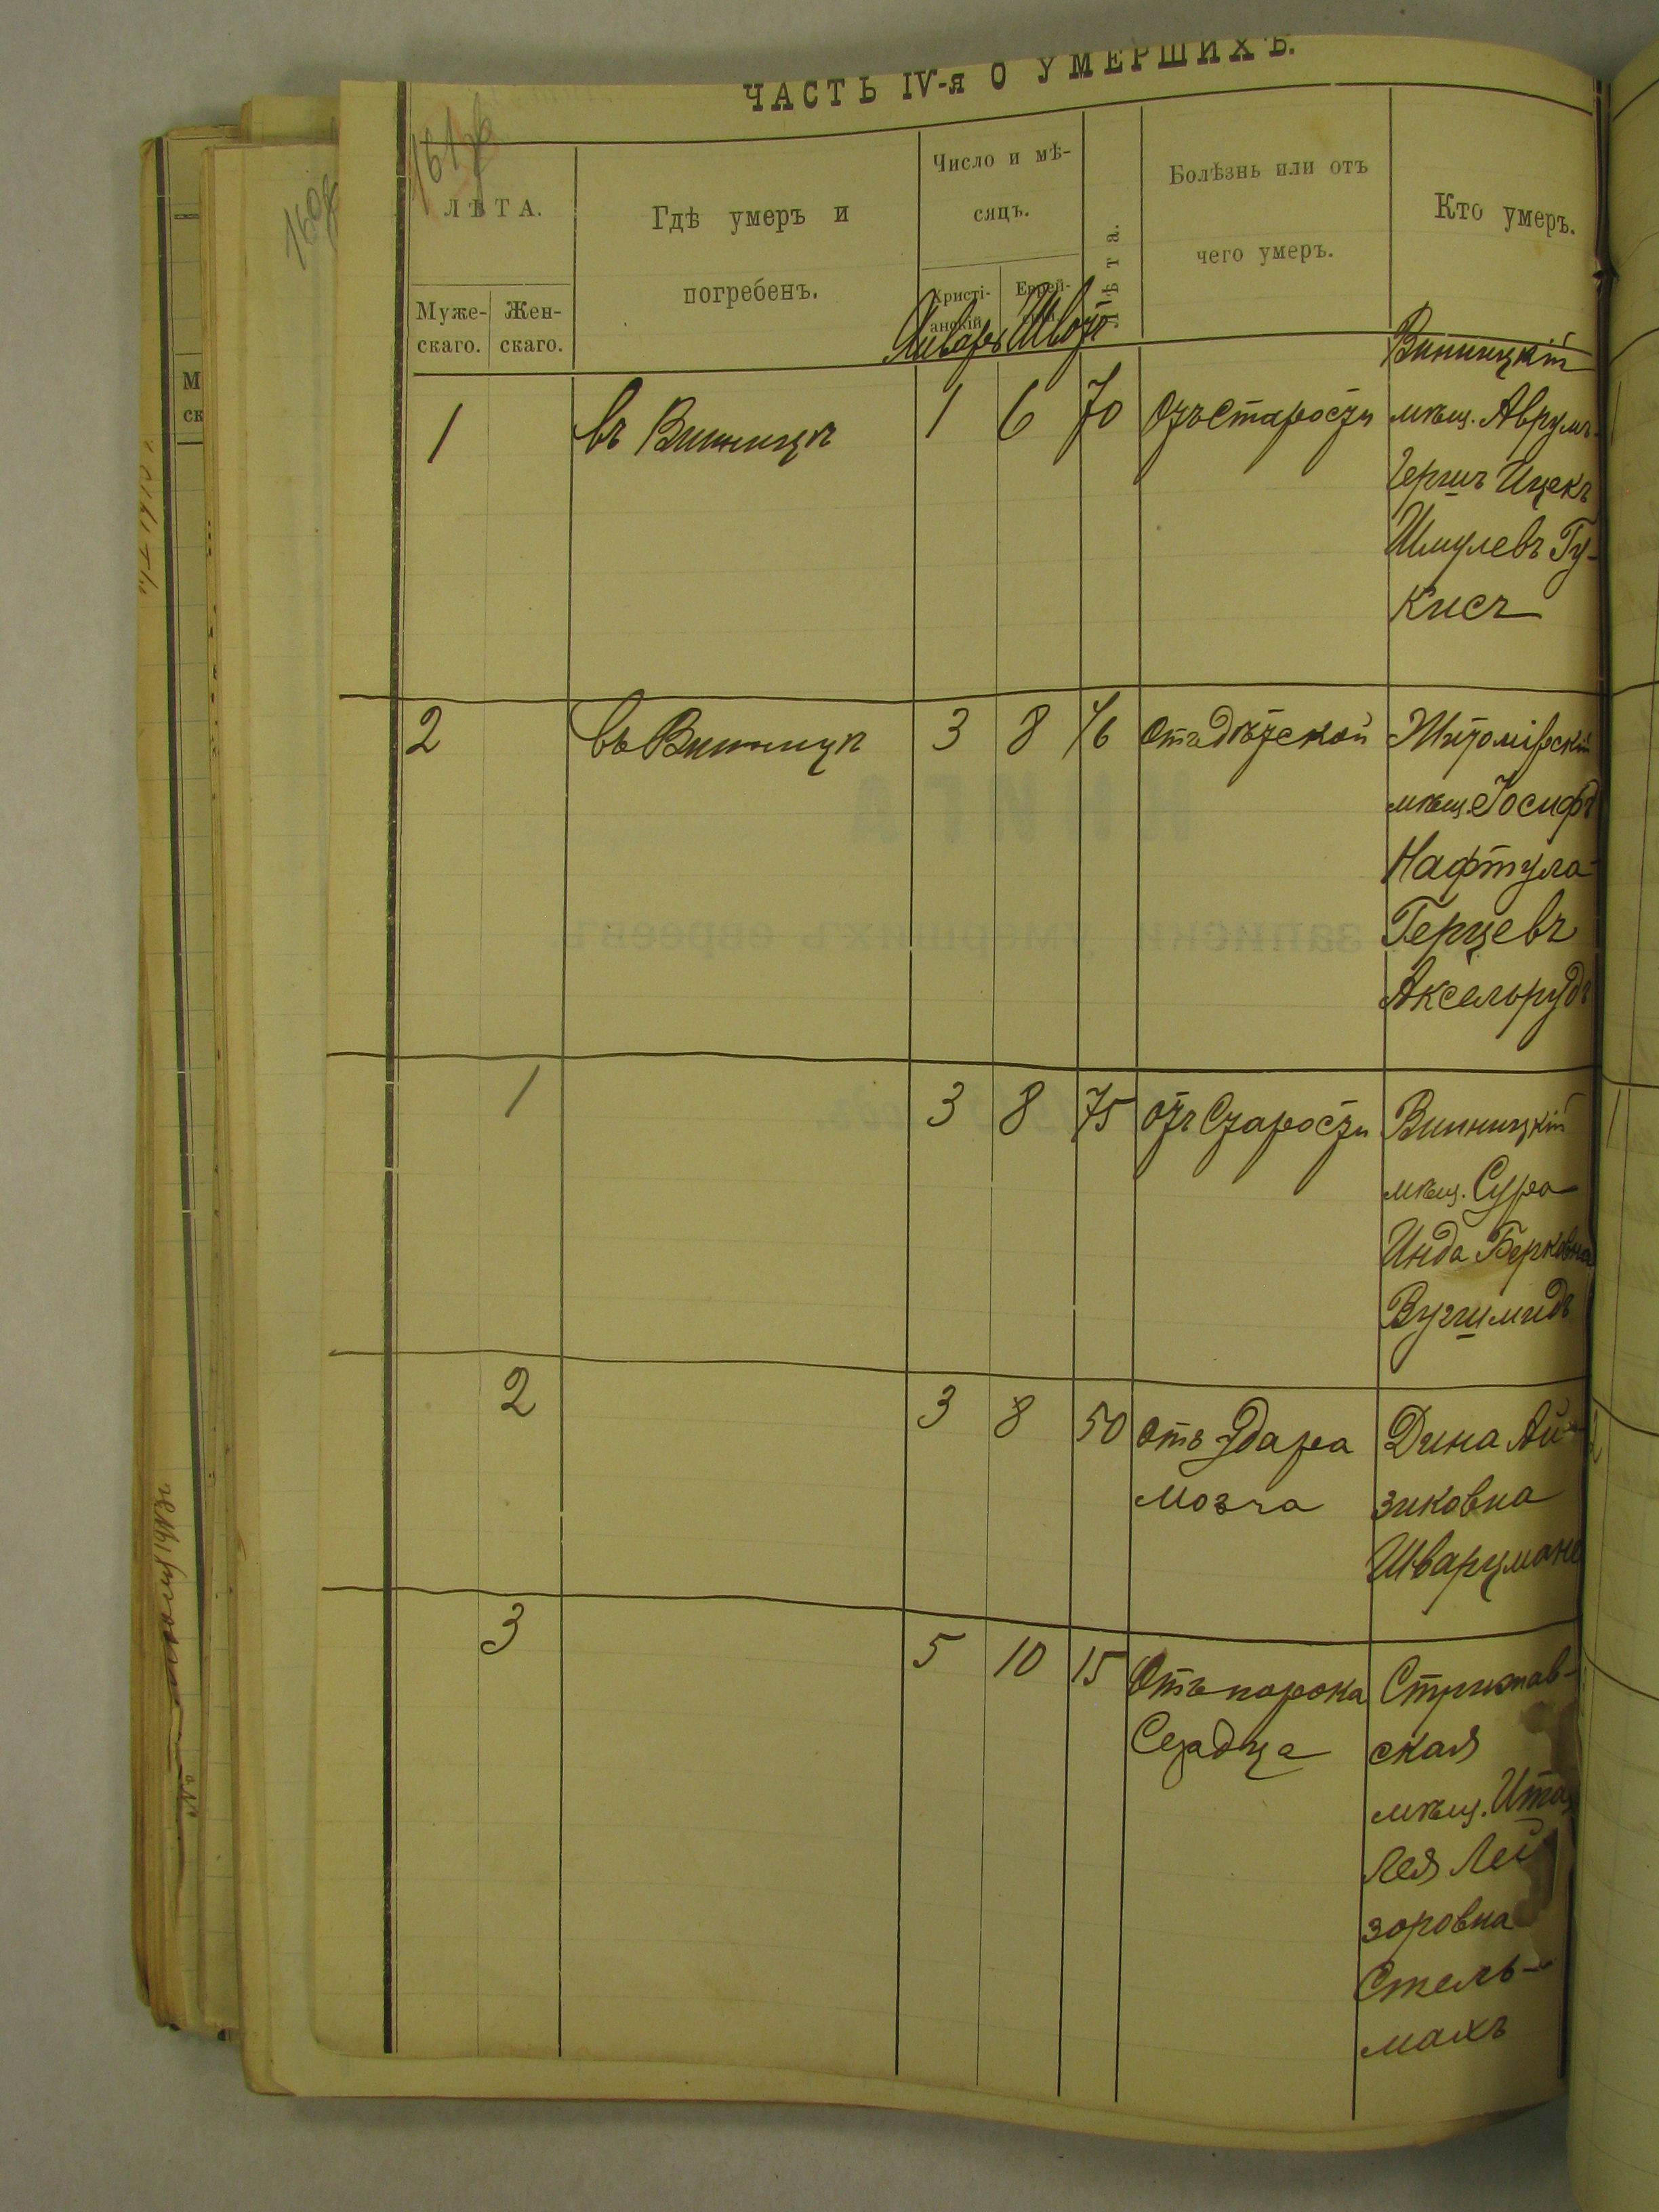 ЧАСТЬ IV-я О УМЕРШИХЪ.
ЛѢТА.
Муже-
скаго.
Жен-
скаго.
Гдѣ умеръ и
погребенъ.
Число и мѣ-
сяцъ.
Христі-
анскій
Еврей-
Январь
Лѣта.
Болѣзнь или отъ
чего умеръ.
Кто умеръ.
1
въ Винницѣ
1 6 70
отъ старости
Винницкій
мѣщ. Аврумъ-
Гершъ Ицекъ
Шмулевъ Гу-
кисъ
2
въ Винницѣ
3 8
отъ дѣтской
Житомірскій
мѣщ. Іосифъ
Нафтула-
Герцевъ
Аксельрудъ
1
3 8 75
отъ Старости
Винницкій
мѣщ. Сура
Инда Берковна
2
3 8 50
отъ Удара
мозга
Дина Ай-
зиковна
Шварцманъ
3
5 10 15
Отъ порока
Сердца
Стрижав-
ская
мѣщ. Ита
Лея Лей
зоровна
Стель-
махъ